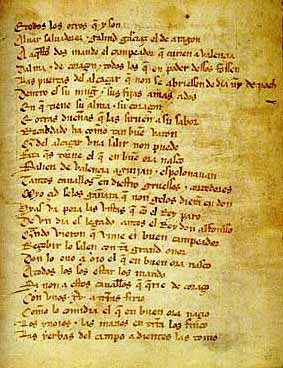 E todos los otros q̃ y son
Aluar saluadorez ⁊ galind garciaz el de aragon
A aq̃stos dos mando el campeador q̃ curien a valençia
Dalma ⁊ de coraçon ⁊ todos los q̃ en poder dessos fossen
Las puertas del alcaçar q̃ non se abriessen de dia nỹ de noch
Dentro es su mugr̃ ⁊ sus fijas amas ados
En q̃ tiene su alma ⁊ su coraçon
E otras dueñas q̃ las siruen a su sabor
Recabdado ha como tan buẽ varon
Q̃ del alcaçar vna salir non puede
Fata q̃s torne el q̃ en buẽ ora nasco
Salien de valençia aguijan ⁊ espolonauan
Tantos cauallos en diestro gruessos ⁊ corredores
Myo çid selos gañara q̃ non gelos dierã en don
Hyas va pora las vistas q̃ cõ el Rey paro
De vn dia es legado antes el Rey don alfonsso
Q̃ndo vieron q̃ vinie el buen campeador
Reçebir lo salen con tã grand onor
Don lo ouo a oio el q̃ en buen ora nasco
A todos los sos estar los mando
Si non a estos caualłos q̃ q̃rie de coraçõ
Con vnos .xv. a tr̃ras firio
Como lo comidia el q̃ en buen ora naçio
Los ynoios ⁊ las manos en tr̃ra los finco
Las yerbas del campo a dientes las tomo